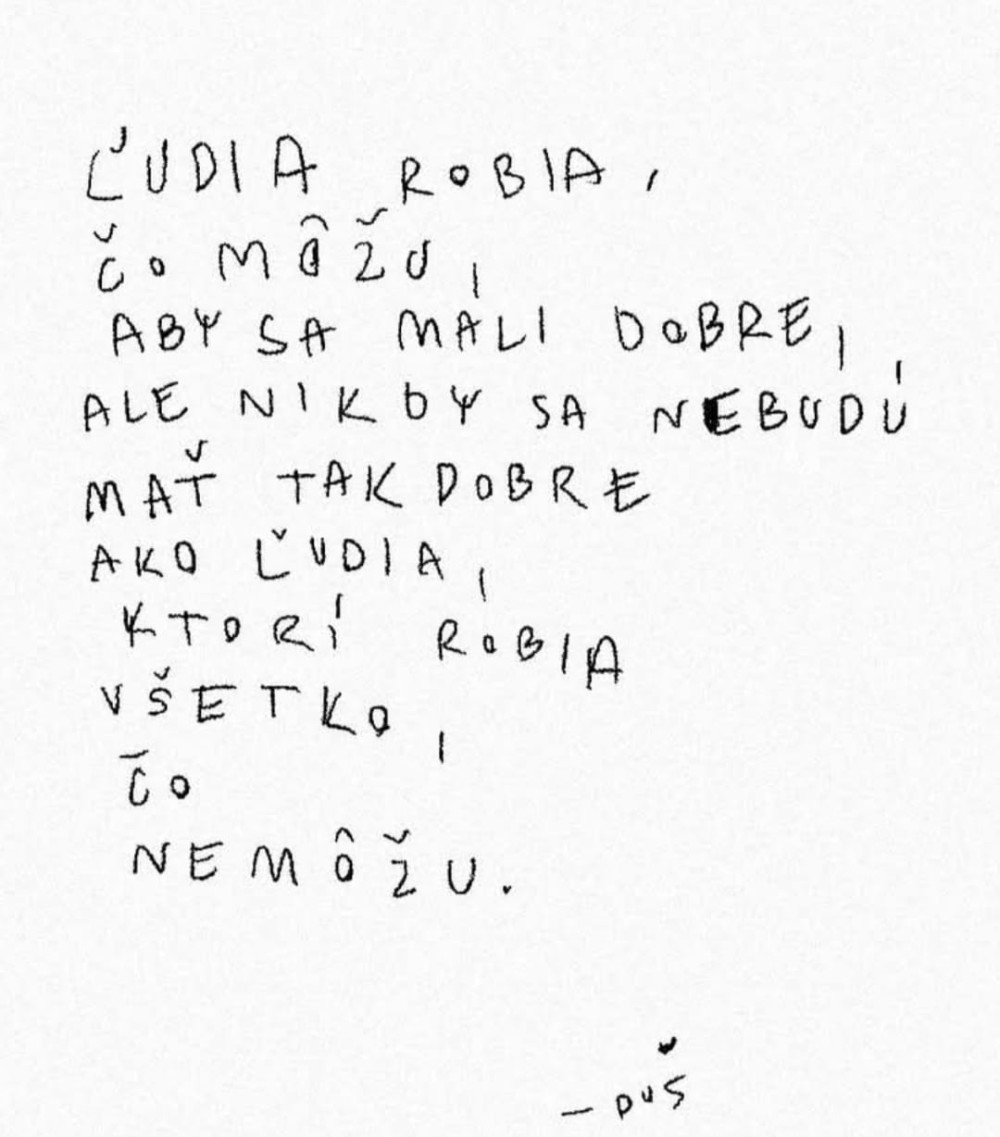 ĽUDIA ROBIA,
ČO MÔŽU,
ABY SA MALI DOBRE,
ALE NIKDY SA NEBUDÚ
MAŤ TAK DOBRE
AKO ĽUDIA,
KTORÍ ROBIA
VŠETKO,
ČO
NEMÔŽU.
– DUŠ